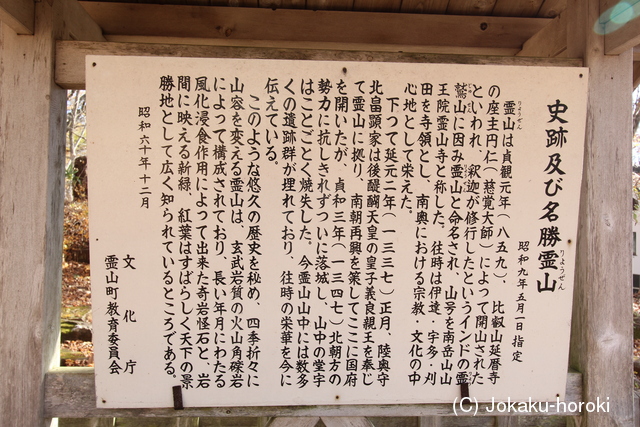 史跡及び名勝霊山
りょうぜん
昭和九年五月一日指定
霊山は貞観元年(八五九)、比叡山延暦寺
りょうぜん
の座主円仁(慈覚大師)によって開山された
といわれ、釈迦が修行したというインドの霊
鷲山に因み霊山と命名され、山号を南岳山山
王院霊山寺と称した。往時は伊達・宇多・刈
田を寺領とし、南奥における宗教・文化の中
心地として栄えた。
下つて延元二年(一三三七)正月、陸奥守
北畠顕家は後醍醐天皇の皇子義良親王を奉じ
て霊山に拠り、南朝再興を策してここに国府
を開いたが、貞和三年(一三四七)北朝方の
勢力に抗しきれずついに落城し、山中の堂宇
はことごとく焼失した。今霊山山中には数多
くの遺跡群が埋れており、往時の栄華を今に
伝えている。
このような悠久の歴史を秘め、四季折々に
山容を変える霊山は、玄武岩質の火山角礫岩
によって構成されており、長い年月にわたる
風化浸食作用によって出来た奇岩怪石と、岩
間に映える新緑、紅葉はすばらしく天下の景
勝地として広く知られているところである。
昭和六十年十二月
文化庁
霊山町教育委員会
(C) Jokaku-horoki